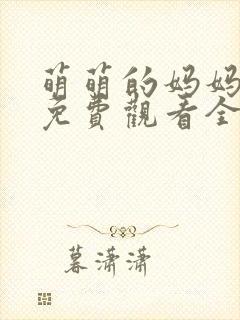 萌萌的妈妈
免費觀看全
暮潇潇